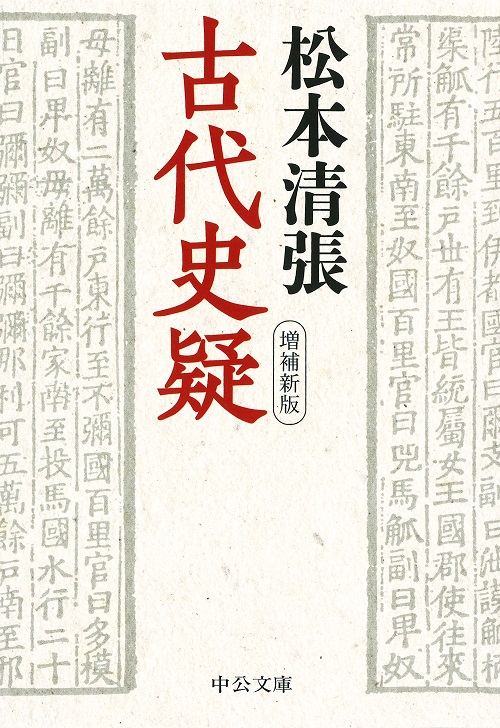 松本清張
古代史疑
増補新版
陸行五百里到伊都國官曰爾支副曰泄謨觚柄
渠觚有千餘戸世有王皆統屬女王國郡使往來
常所駐東南至奴國百里官曰兕馬觚副曰卑奴
毋離有二萬餘戸東行至不彌國百里官曰多模
副曰卑奴毋離有千餘家南至投馬國水行二十
日官曰彌彌副曰彌彌那利可五萬餘戸南至邪
中公文庫